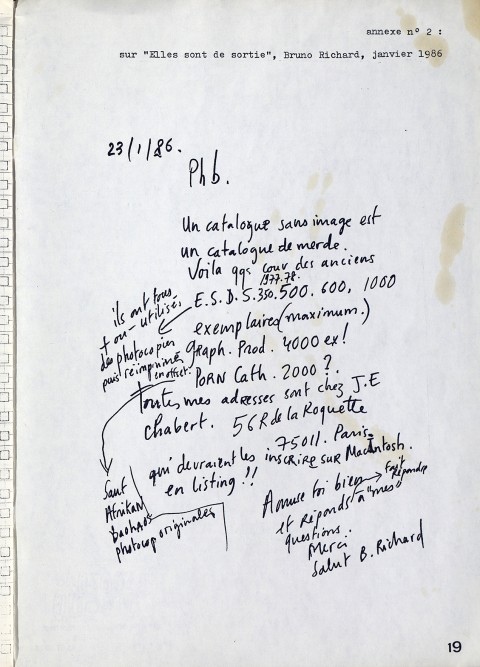 annexe n° 2 :
sur "Elles sont de sortie", Bruno Richard, janvier 1986
23/1/86.
Phb.
Un catalogue sans image est
un catalogue de merde.
Voila qqs couv des anciens
1977.78.
E.S.D.S. 350. 500. 600, 1000
exemplaires (maximum.)
Graph. Prod. 4000 ex!
PORN Cath. 2000 ?.
toutes mes adresses sont chez J.E
Chabert. 56 R de la Roquette
75011. Paris
qui devraient les inscrire sur Macintosh.
en listing !!
ils ont tous
+ ou - utilisés
des photocopies
puis réimprimés
en offset.
Sauf
Afrikan
photocop originales
Amuse toi bien
fait répondre
et réponds à "mes"
questions.
Merci
Salut B. Richard
19